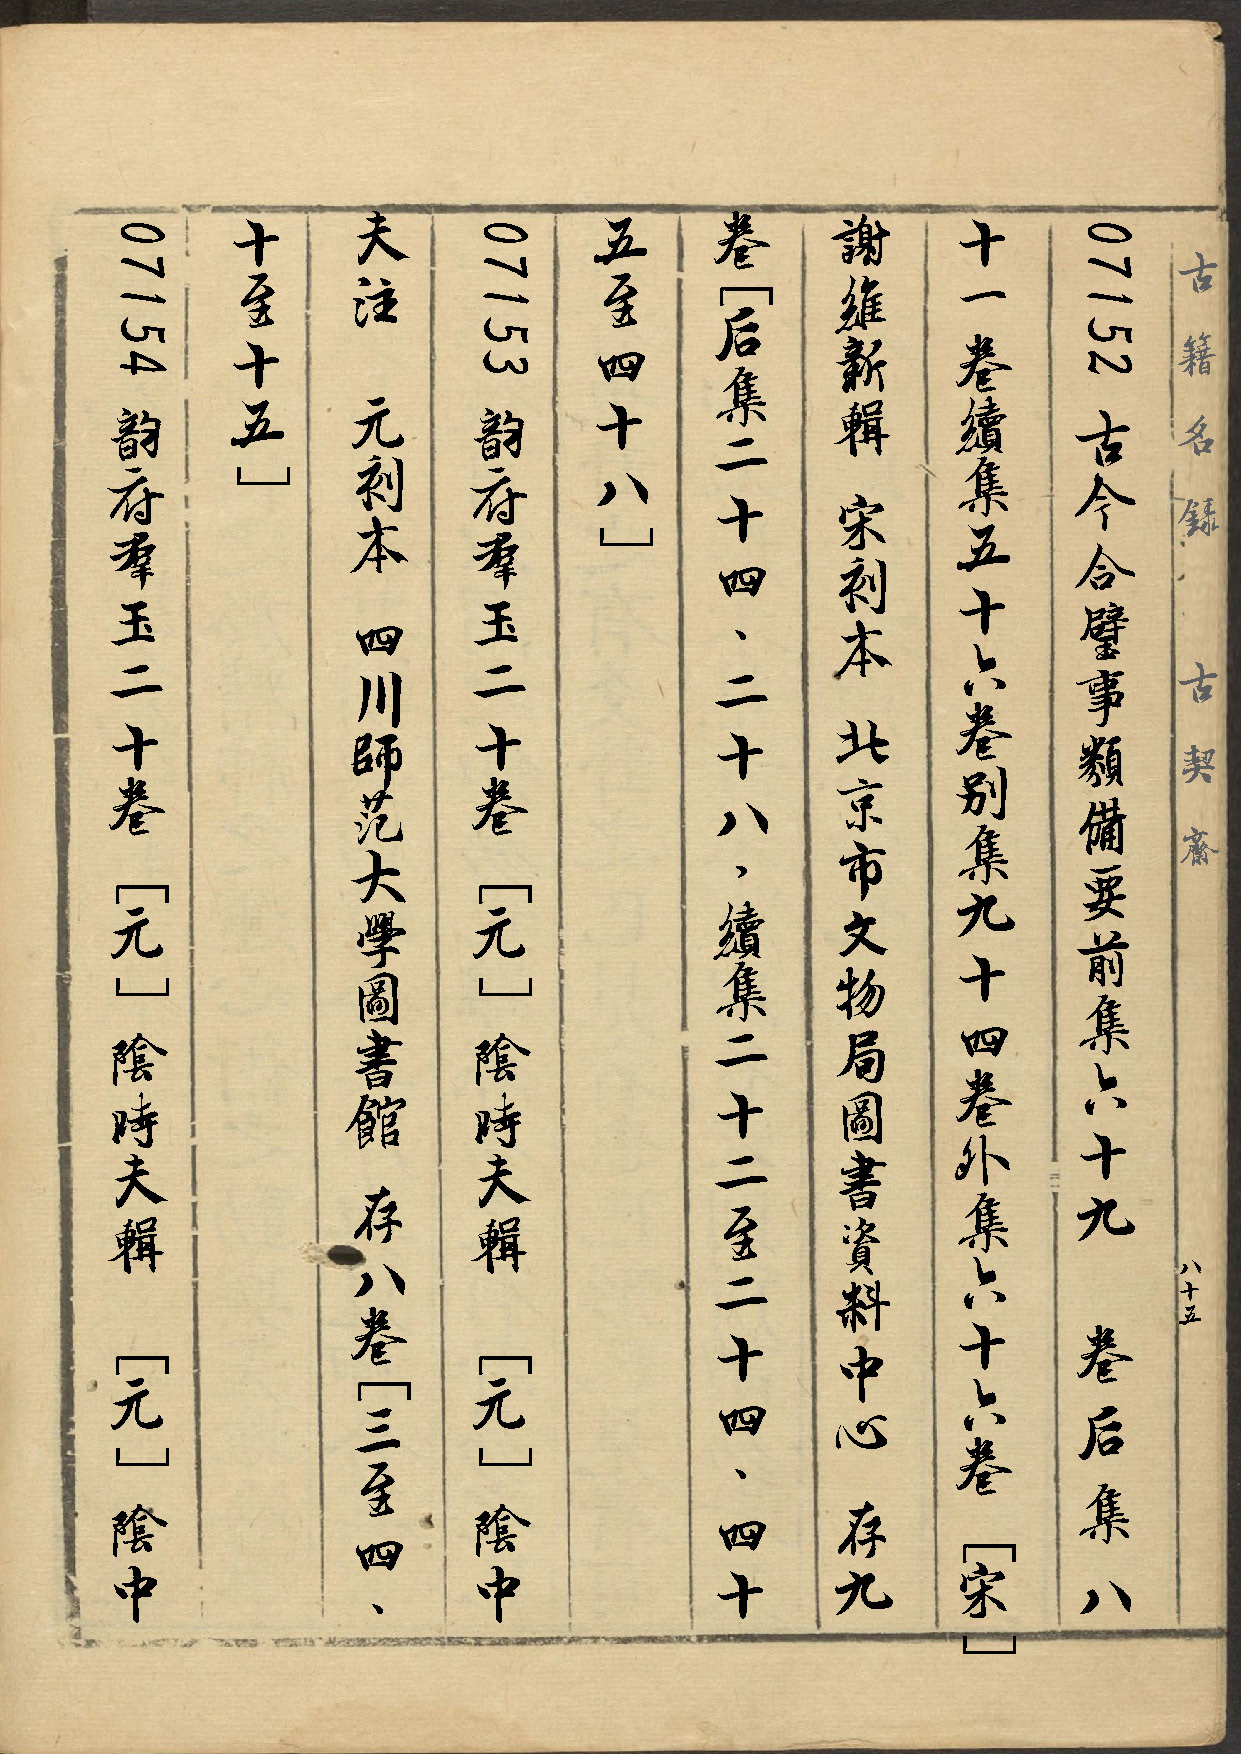 古籍名録 古契齋 八十五
07152 古今合璧事類備要前集六十九 卷后集八
十一卷續集五十六卷别集九十四卷外集六十六卷 [宋]
謝維新輯 宋刻本 北京市文物局圖書資料中心 存九
卷[后集二十四、二十八，續集二十二至二十四、四十
五至四十八]
07153 韵府羣玉二十卷 [元] 陰時夫輯 [元] 陰中
夫注 元刻本 四川師范大學圖書館 存八卷[三至四、
十至十五]
07154 韵府羣玉二十卷 [元] 陰時夫輯 [元] 陰中